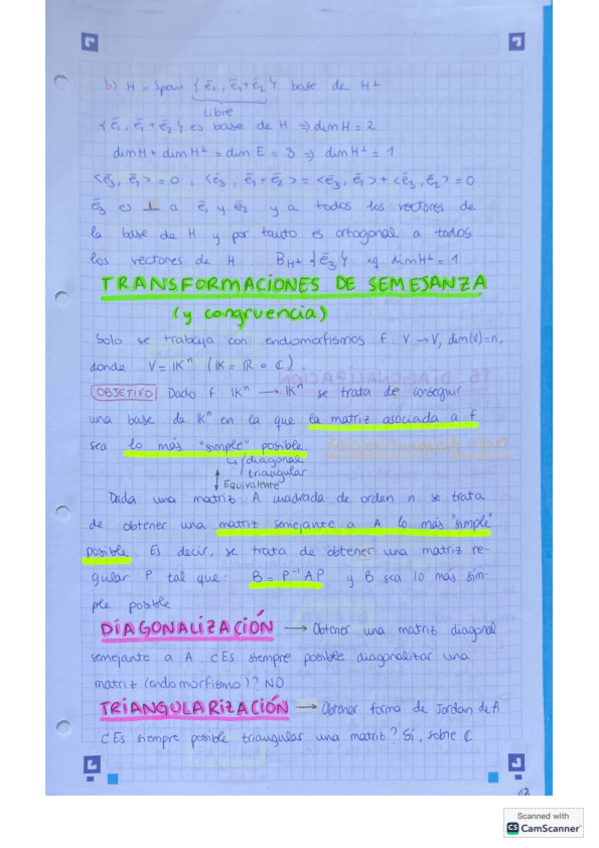 b) H = Span {ē₁, ē₁+ē₂} base de H⊥
Libre
{ē₁, ē₁+ē₂} es base de H ⇒ dim H = 2
dim H + dim H⊥ = dim E = 3 ⇒ dim H⊥ = 1
<ē₃, ē₁> = 0 , <ē₃, ē₁+ē₂> = <ē₃, ē₁> + <ē₃, ē₂> = 0
ē₃ es ⊥ a ē₁ y ē₂ y a todos los vectores de
la base de H y por tanto es ortogonal a todos
los vectores de H B_H⊥ {ē₃} xq dim H⊥ = 1
TRANSFORMACIONES DE SEMEJANZA
(y congruencia)
Solo se trabaja con endomorfismos f: V → V, dim(V)=n,
donde V = IKⁿ (IK = IR o ℂ)
OBJETIVO Dado f: IKⁿ → IKⁿ se trata de conseguir
una base de Kⁿ en la que la matriz asociada a f
sea lo más "simple" posible
diagonal
triangular
Equivalente
Dada una matriz A cuadrada de orden n se trata
de obtener una matriz semejante a A lo más "simple"
posible. Es decir, se trata de obtener una matriz re-
gular P tal que: B = P⁻¹AP y B sea lo más sim-
ple posible
DIAGONALIZACIÓN → Obtener una matriz diagonal
semejante a A. ¿Es siempre posible diagonalizar una
matriz (endomorfismo)? NO
TRIANGULARIZACIÓN → Obtener forma de Jordan de A
¿Es siempre posible triangular una matriz? Sí, sobre ℂ
Scanned with
CS CamScanner